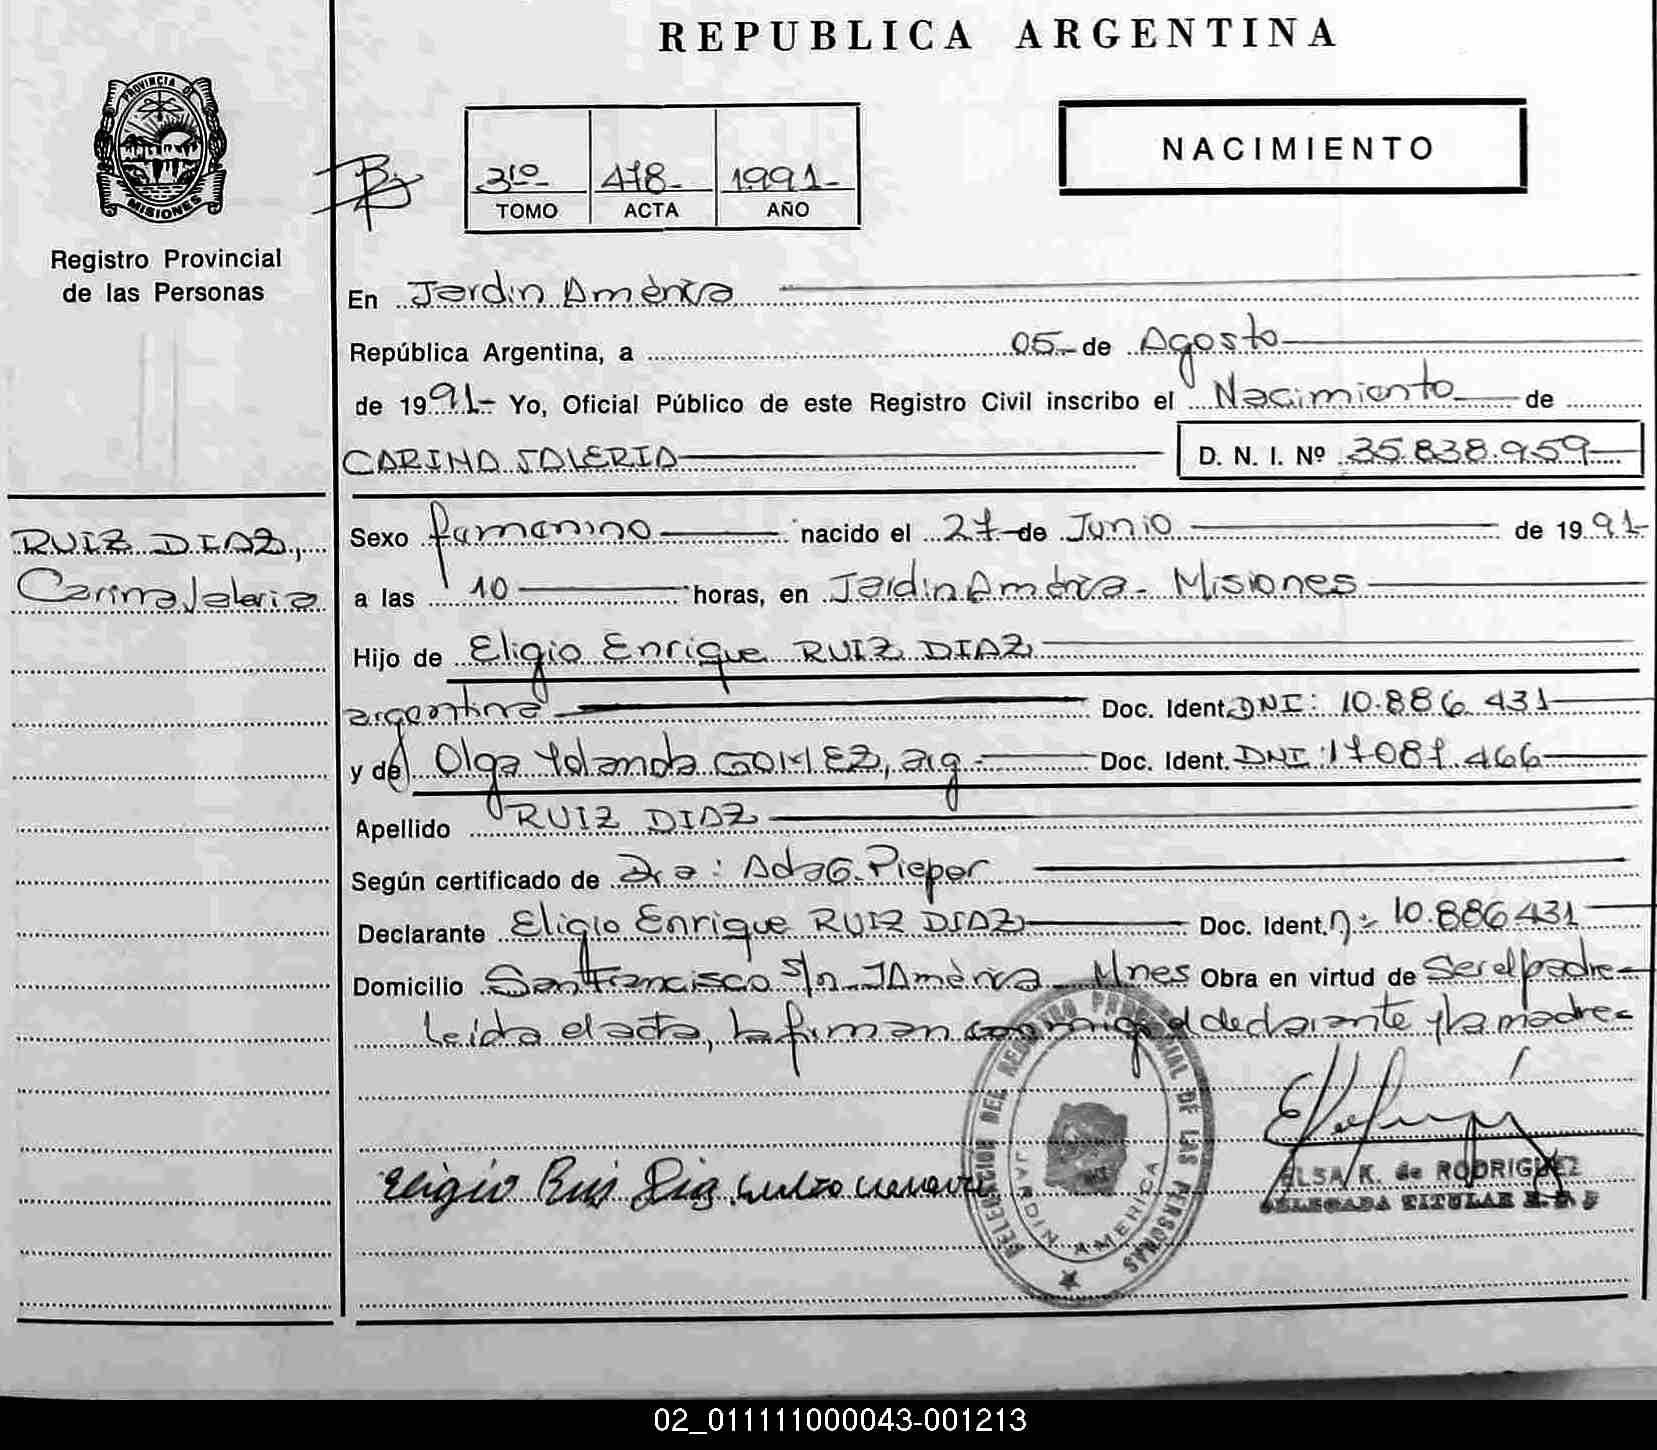 REPUBLICA ARGENTINA
PROVINCIA DE MISIONES
Registro Provincial
de las Personas
NACIMIENTO
3ro TOMO 478 ACTA 1991 AÑO
En Jardin América
República Argentina, a 05 de Agosto
de 1991 Yo, Oficial Público de este Registro Civil inscribo el Nacimiento de
CARINA JALERIA D. N. I. Nº 35.838.959
RUIZ DIAZ,
Carina Jaleria
Sexo femenino nacido el 27 de Junio de 1991
a las 10 horas, en Jardin América - Misiones
Hijo de Eligio Enrique RUIZ DIAZ
argentina Doc. Ident. DNI: 10.886.431
y de Olga Yolanda GOMEZ, arg Doc. Ident. DNI: 17.087.466
Apellido RUIZ DIAZ
Según certificado de Dra: Ada G. Pieper
Declarante Eligio Enrique RUIZ DIAZ Doc. Ident. 10.886431
Domicilio San Francisco S/n J América Mnes Obra en virtud de Ser el padre
Leida el acta, la firman conmigo el declarante y la madre
DELEGACION DEL REGISTRO PROVINCIAL DE LAS PERSONAS
JARDIN AMERICA
Eligio Ruis Diaz
ELSA K. de RODRIGUEZ
DELEGADA TITULAR
02_011111000043-001213